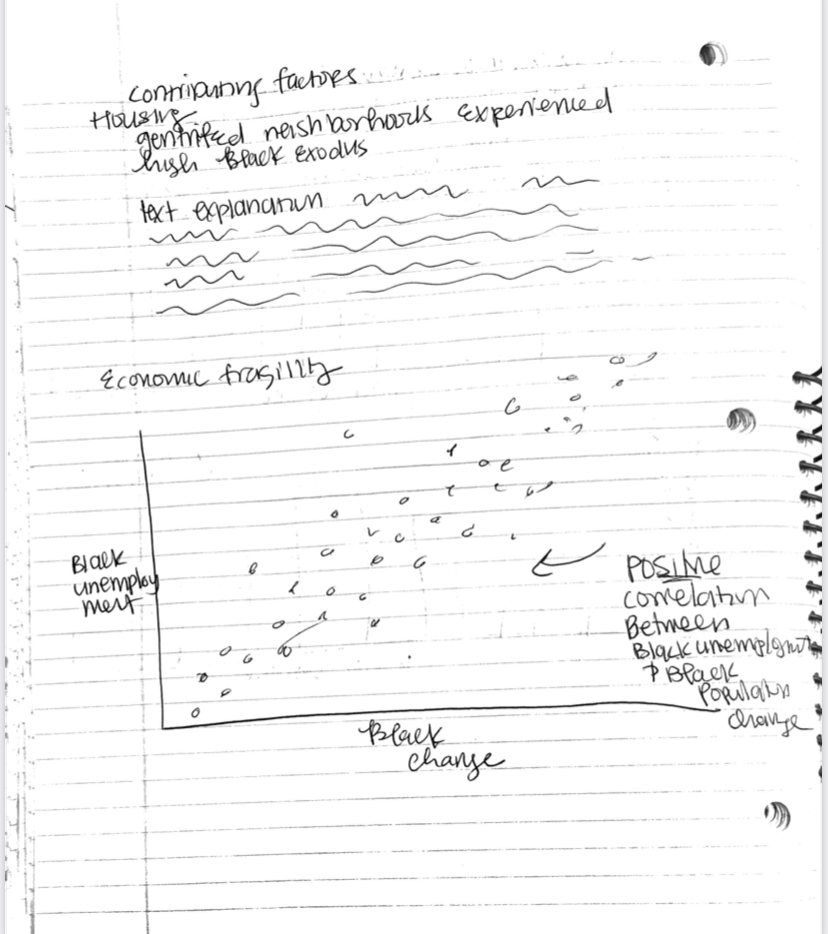 Contributing factors
Housing
gentrified neighborhoods experienced
high Black Exodus
text explanation
Economic fragility
Black
unemploy
ment
Positive
correlation
Between
Black unemployment
& Black
Population
change
Black
change